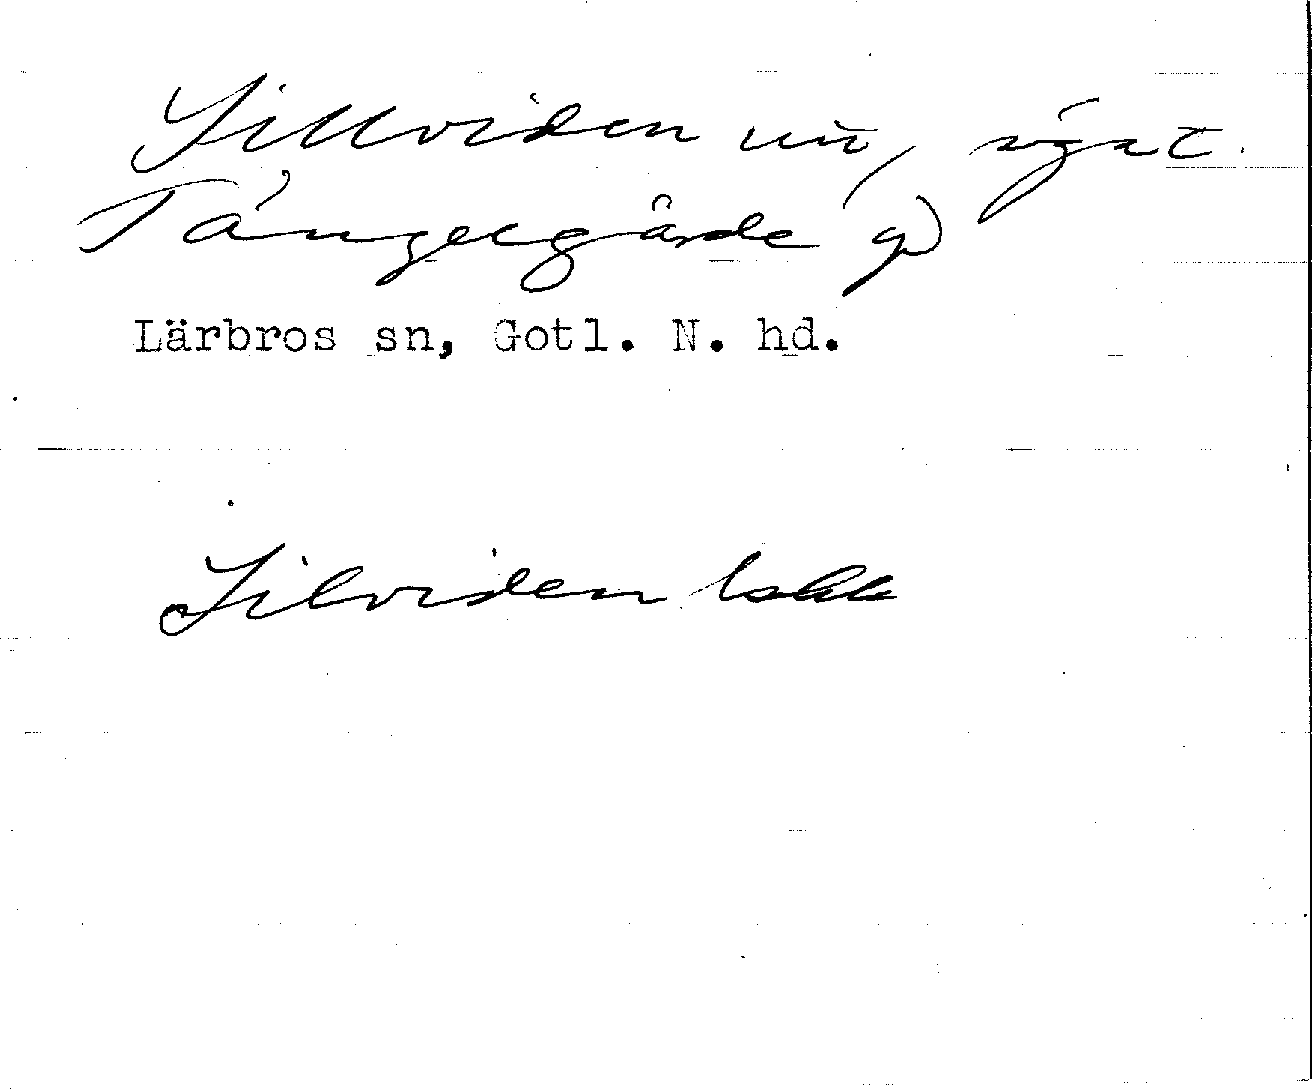 Sillviden
Tängelgårde g
Lärbros sn, Gotl. N. hd.
Silviden